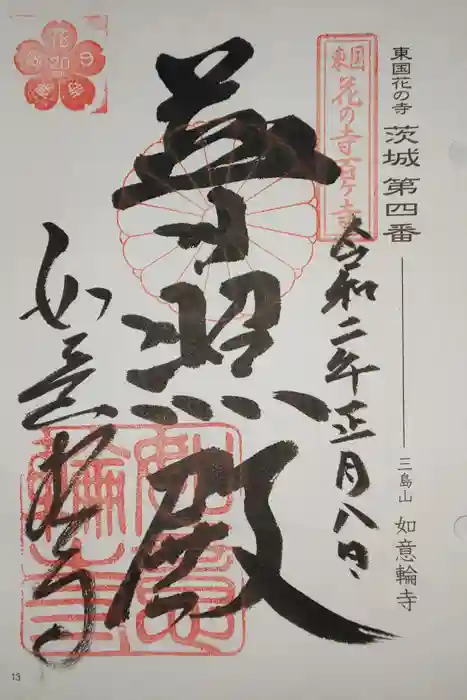 東国花の寺 茨城 第四番
三島山 如意輪寺
東国
花の寺百ヶ寺
令和二年正月八日
普照殿
如意輪寺
如意輪寺
花
20
13